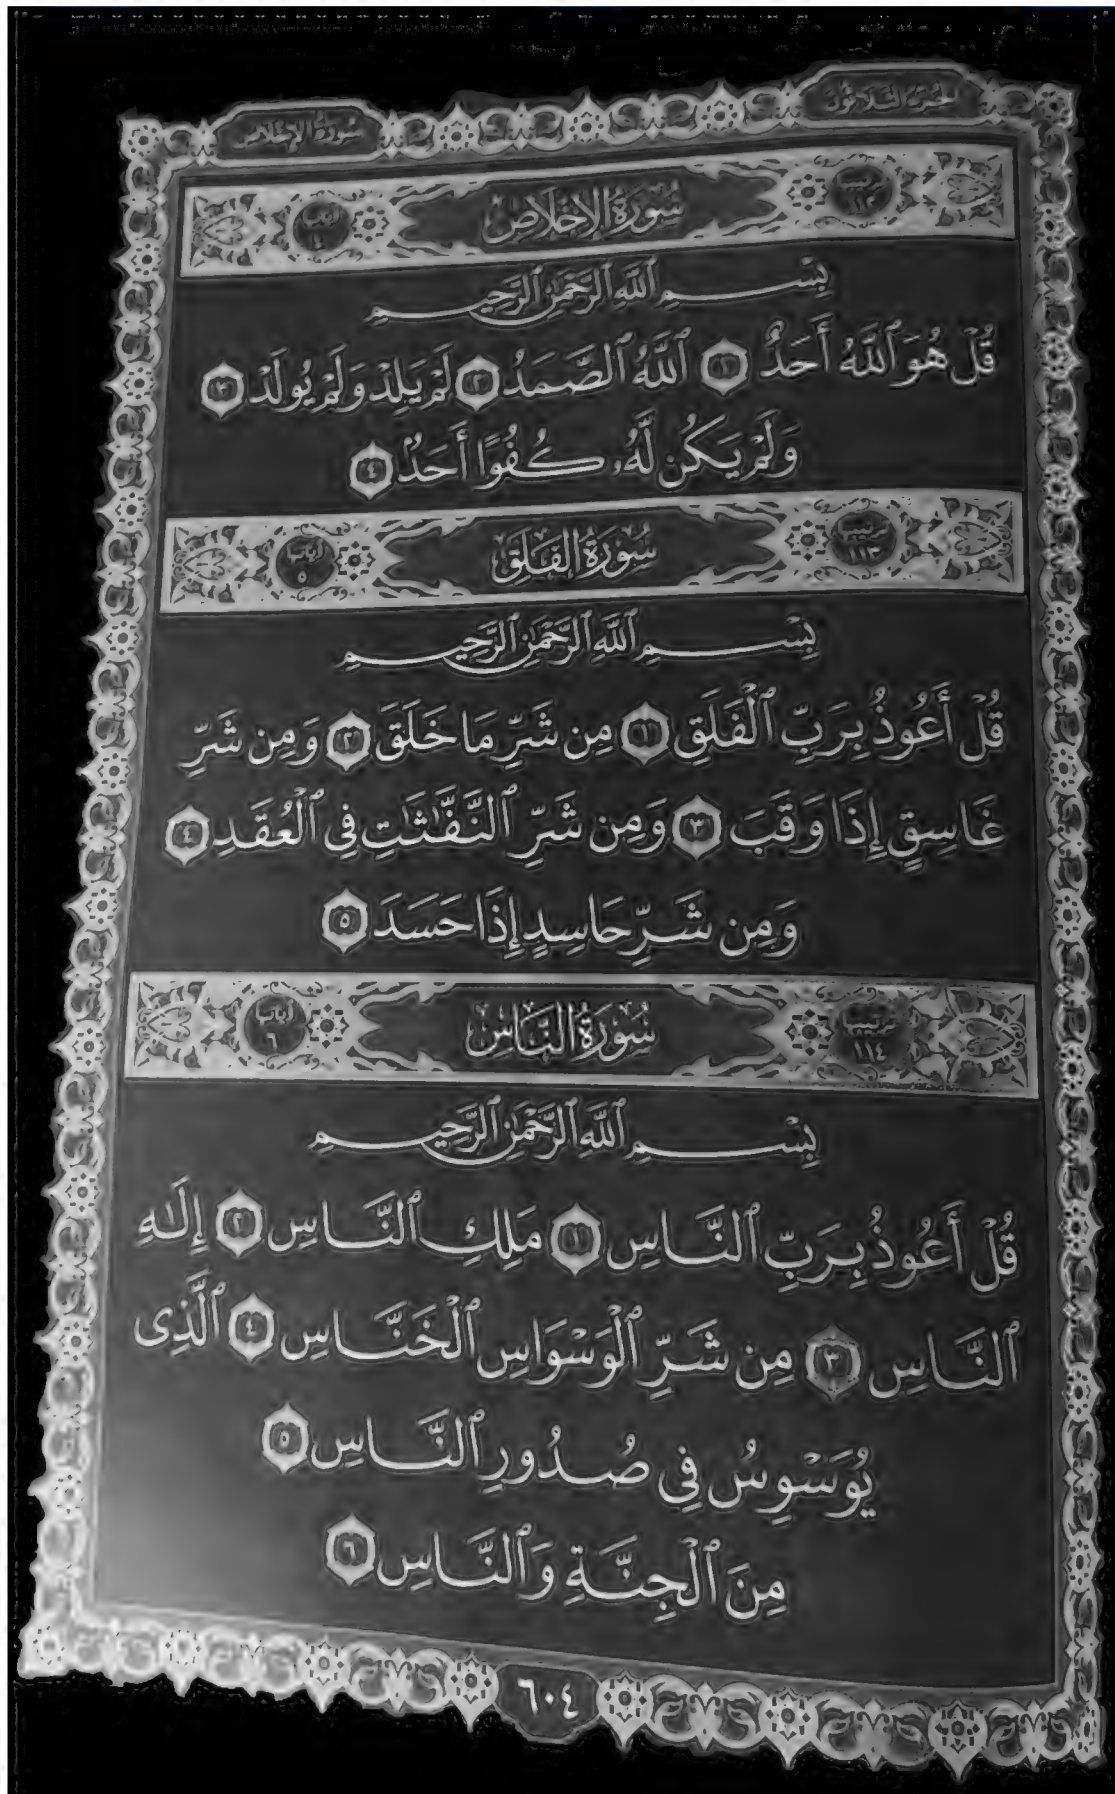 الجزء الثلاثون
سورة الإخلاص
ترتيبها ١١٢
سُورَةُ الإِخْلَاصِ
آياتها ٤
بِسْمِ ٱللَّهِ ٱلرَّحْمَٰنِ ٱلرَّحِيمِ
قُلْ هُوَ ٱللَّهُ أَحَدٌ ١ ٱللَّهُ ٱلصَّمَدُ ٢ لَمْ يَلِدْ وَلَمْ يُولَدْ ٣
وَلَمْ يَكُن لَّهُۥ كُفُوًا أَحَدٌۢ ٤
ترتيبها ١١٣
سُورَةُ الفَلَقِ
آياتها ٥
بِسْمِ ٱللَّهِ ٱلرَّحْمَٰنِ ٱلرَّحِيمِ
قُلْ أَعُوذُ بِرَبِّ ٱلْفَلَقِ ١ مِن شَرِّ مَا خَلَقَ ٢ وَمِن شَرِّ
غَاسِقٍ إِذَا وَقَبَ ٣ وَمِن شَرِّ ٱلنَّفَّٰثَٰتِ فِى ٱلْعُقَدِ ٤
وَمِن شَرِّ حَاسِدٍ إِذَا حَسَدَ ٥
ترتيبها ١١٤
سُورَةُ النَّاسِ
آياتها ٦
بِسْمِ ٱللَّهِ ٱلرَّحْمَٰنِ ٱلرَّحِيمِ
قُلْ أَعُوذُ بِرَبِّ ٱلنَّاسِ ١ مَلِكِ ٱلنَّاسِ ٢ إِلَٰهِ
ٱلنَّاسِ ٣ مِن شَرِّ ٱلْوَسْوَاسِ ٱلْخَنَّاسِ ٤ ٱلَّذِى
يُوَسْوِسُ فِى صُدُورِ ٱلنَّاسِ ٥
مِنَ ٱلْجِنَّةِ وَٱلنَّاسِ ٦
٦٠٤